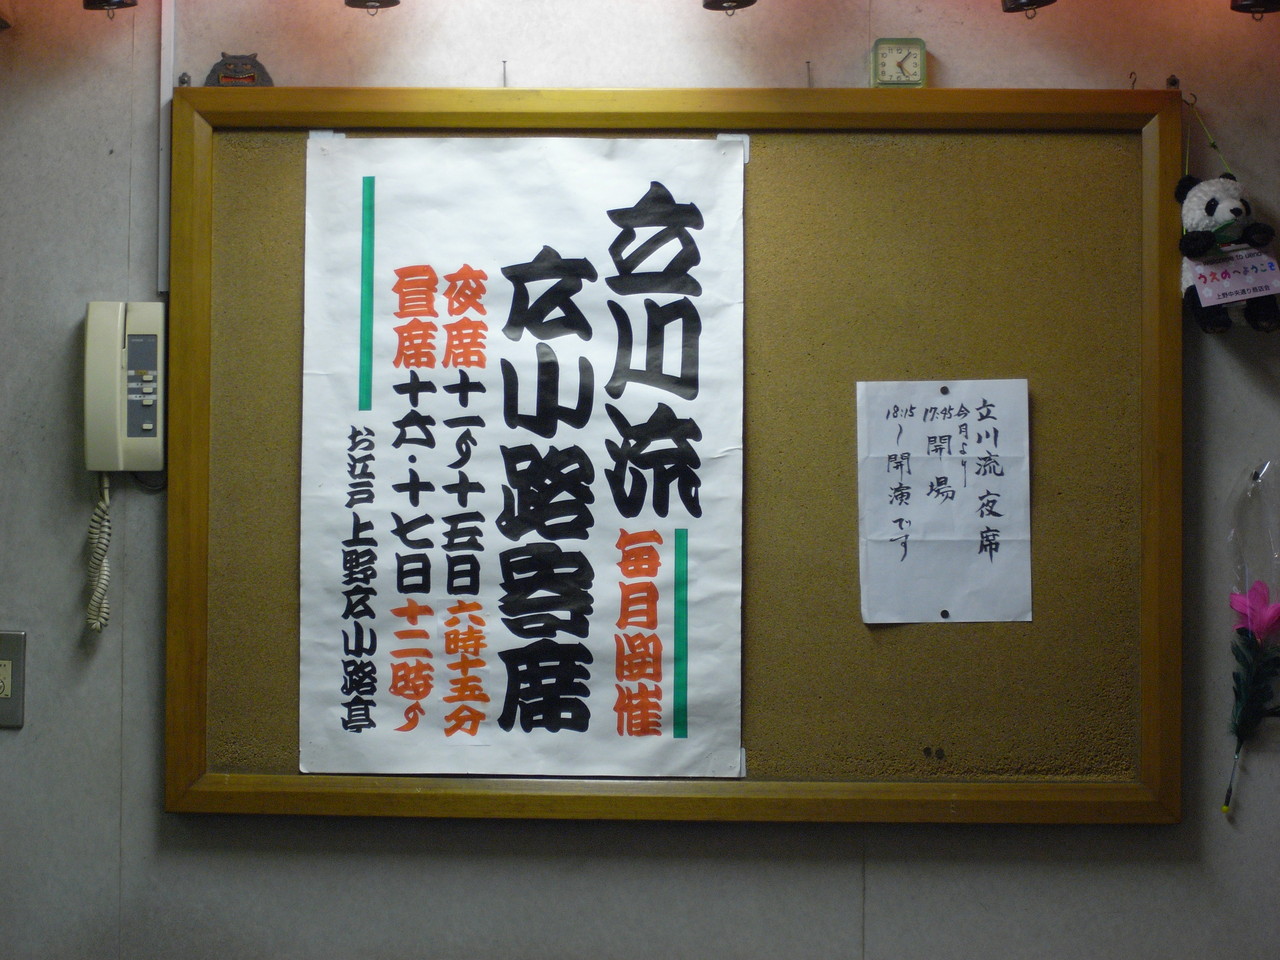 立川流
毎月開催
広小路寄席
夜席 十一〜十五日 六時十五分
昼席 十六・十七日 十二時〜
お江戸上野広小路亭
立川流 夜席
今月より
17:45 開場
18:15〜開演です
うえのへようこそ
上野中央通り商店会